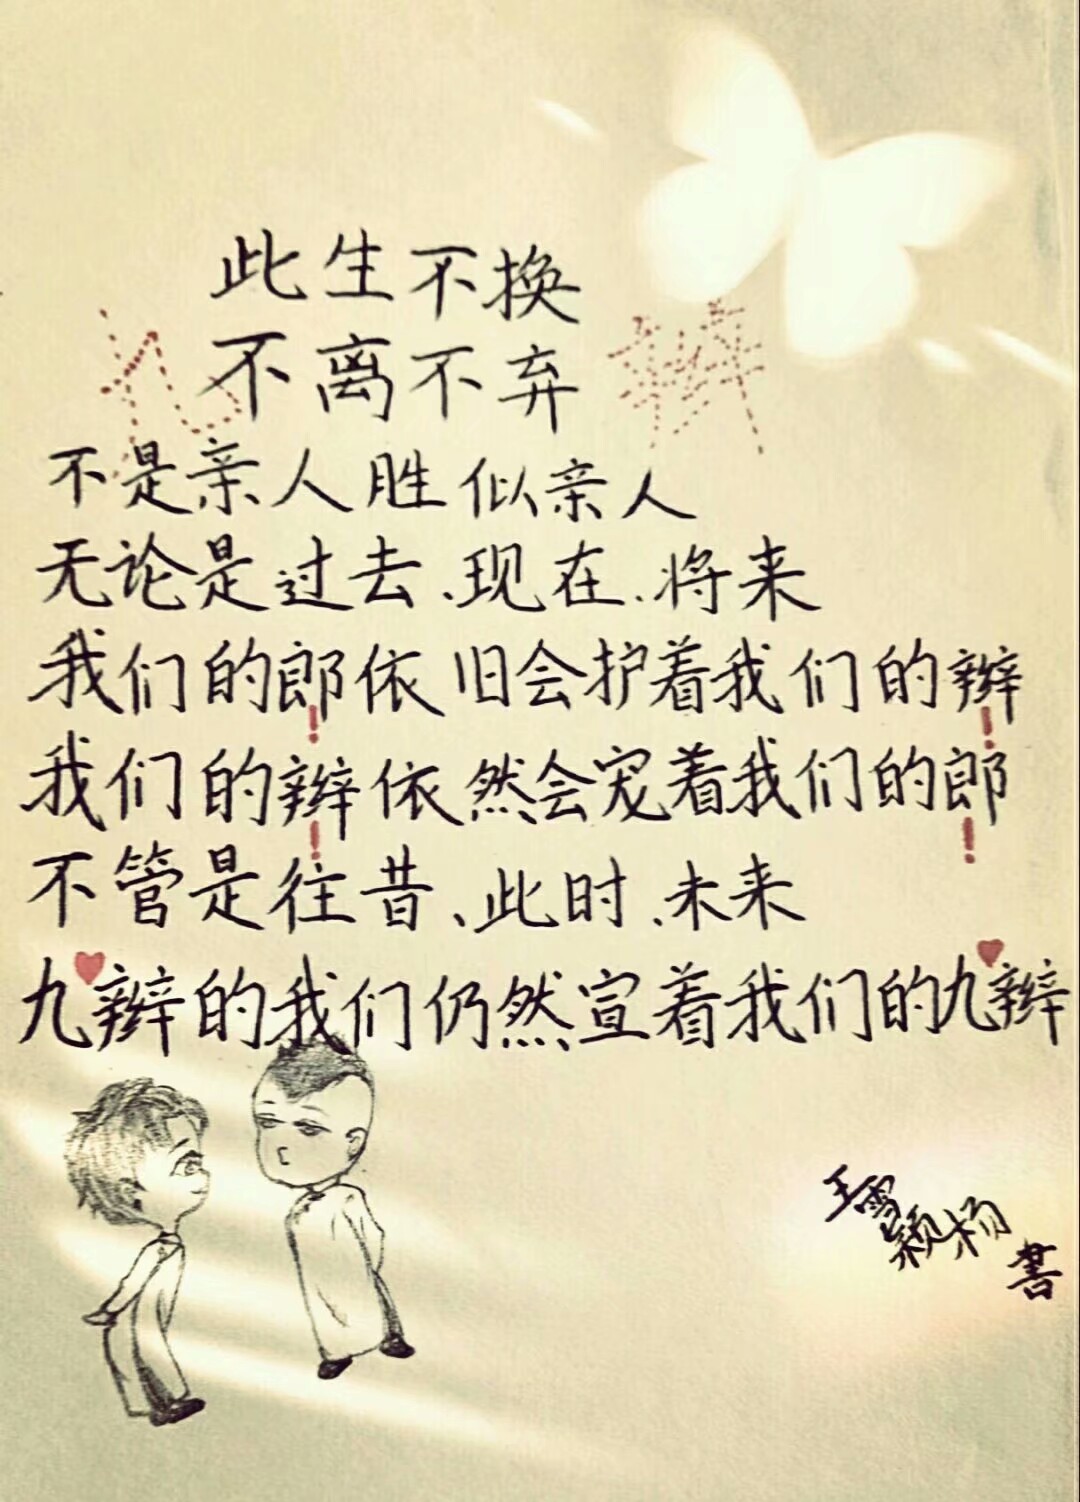 此生不换
九 不离不弃 辫
不是亲人胜似亲人
无论是过去、现在、将来
我们的郎依旧会护着我们的辫
！ ！
我们的辫依然会宠着我们的郎
！ ！
不管是往昔、此时、未来
九辫的我们仍然宣着我们的九辫
王雪颖杨
書